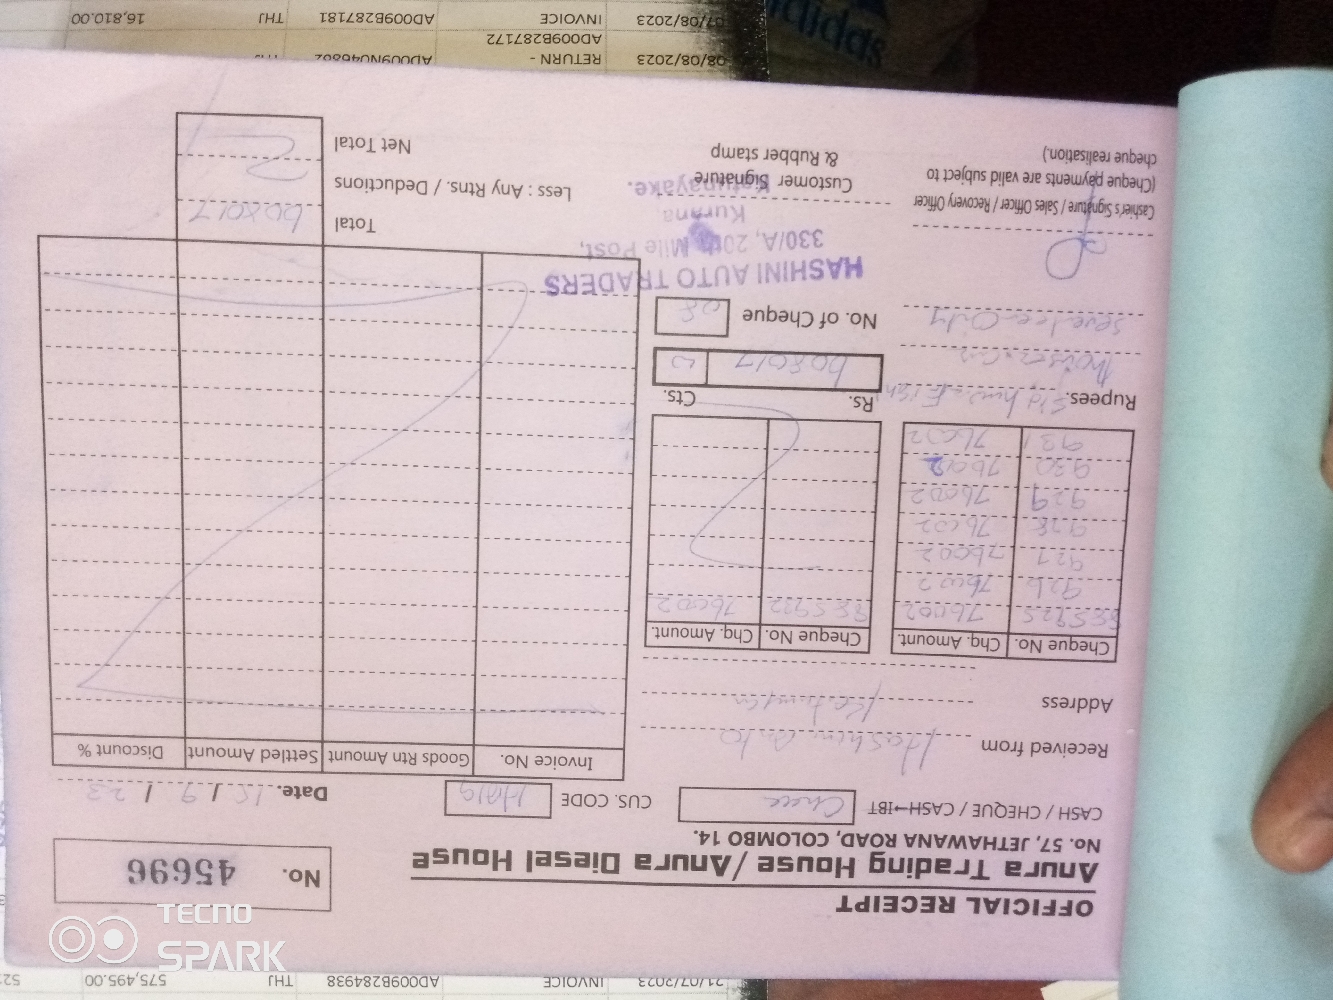 OFFICIAL RECEIPT
Anura Trading House / Anura Diesel House
No. 57, JETHAWANA ROAD, COLOMBO 14.
No. 45696
CASH / CHEQUE / CASH→IBT
CUS. CODE
Date. 15 / 9 / 23
Received from
Address
Cheque No. Chq. Amount. Cheque No. Chq. Amount.
885925 76002 885932 76002
926 76002
927 76002
928 76002
929 76002
930 76002
931 76002
Rs. 608017 Cts.
Rupees.
No. of Cheque 08
Invoice No. Goods Rtn Amount Settled Amount Discount %
Total 608017
Less : Any Rtns. / Deductions
Net Total
HASHINI AUTO TRADERS
330/A, 20th Mile Post,
Kurana
Katunayake.
Customer Signature
& Rubber stamp
Cashier's Signature / Sales Officer / Recovery Officer
(Cheque payments are valid subject to
cheque realisation.)
07/08/2023 INVOICE AD009B287181 THJ 16,810.00
08/08/2023 RETURN - AD009B287172
21/07/2023 INVOICE AD009B284938 THJ 575,495.00
TECNO
SPARK
adidas